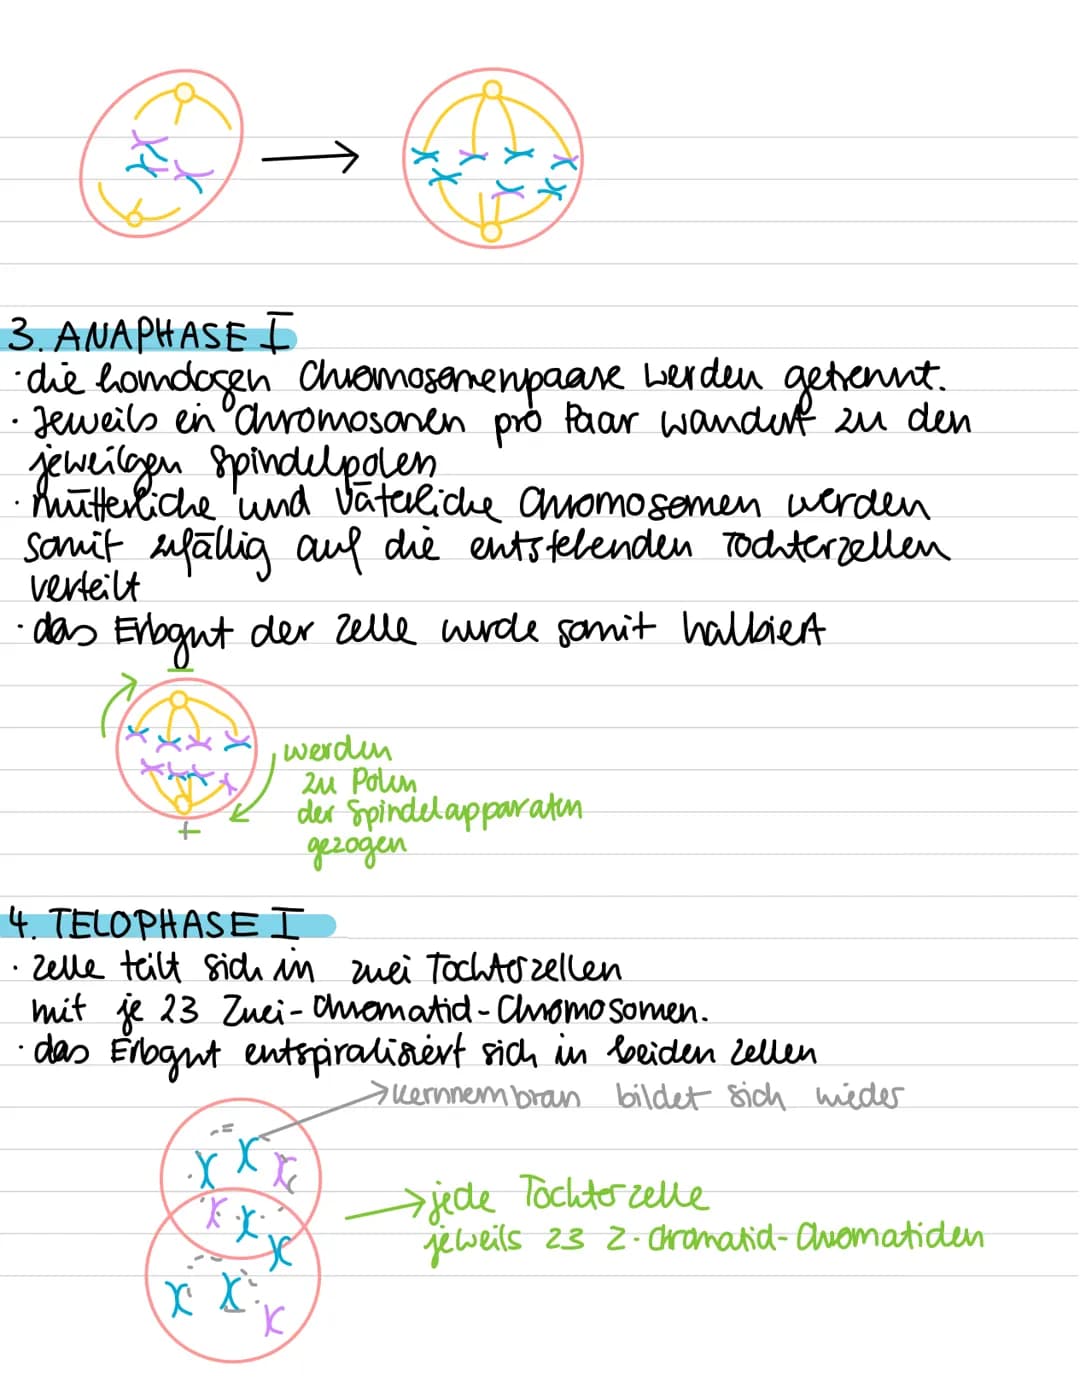 3. ANAPHASE I
· die homologen Chromosomenpaare werden getrennt.
· Jeweils ein Chromosonen pro Paar wandert zu den
jeweilgen Spindelpolen
· mütterliche und Väterliche Chromosomen werden
somit zufällig auf die entstehenden Tochterzellen
verteilt
· das Erbgut der Zelle wurde somit halbiert
werden
zu Polen
der Spindelapparaten
gezogen
+
4. TELOPHASE I
· Zelle teilt sich in zwei Tochterzellen
mit je 23 Zwei-Chromatid-Chromosomen.
· das Erbgut entspiralisiert sich in beiden Zellen
→ Kernmembran bildet sich wieder
→ jede Tochterzelle
jeweils 23 2-Chromatid-Chromatiden